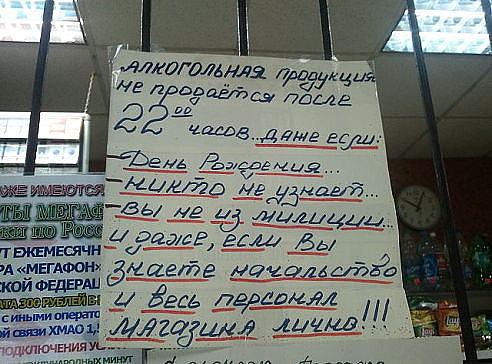 АЛКОГОЛЬНАЯ продукция
не продаётся после
22⁰⁰ часов... даже если:
- День Рождения...
- никто не узнает...
- вы не из милиции...
и даже, если Вы
знаете начальство
и весь персонал
магазина лично!!!
ЖЕ ИМЕЮТСЯ
МЕГАФ
ки по Росс
УТ ЕЖЕМЕСЯЧН
РА «МЕГАФОН»
СКОЙ ФЕДЕРАЦ
АТА 300 РУБЛЕЙ В
с иными операто
ой связи ХМАО 1,
ПОДКЛЮЧЕНИЯ УС
МИНУТ